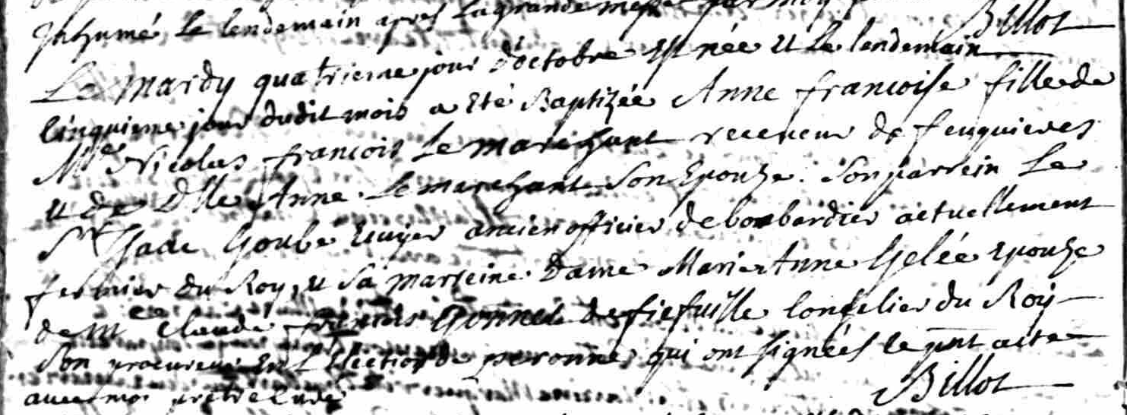 Inhumé le lendemain apres la grande messe par moy
Billot
Le mardy quatrieme jour d'octobre est née et le lendemain
cinquieme jour dudit mois a eté Baptizée Anne francoise fille de
Mre Nicolas francois Le marchant receveur de feuquieres
et de Dlle Anne Le marchant son Epouze. son parrein Le
Sr Goubé Ecuyer ancien officier de bombardier actuellement
fermier du Roy, et sa marreine Dame Marie Anne Gelée epouze
de mre Claude francois Gonnet de fiefuille Conseiller du Roy
Son procureur En l'Election de peronne, qui ont signées le pnt acte
avec moi
Billot